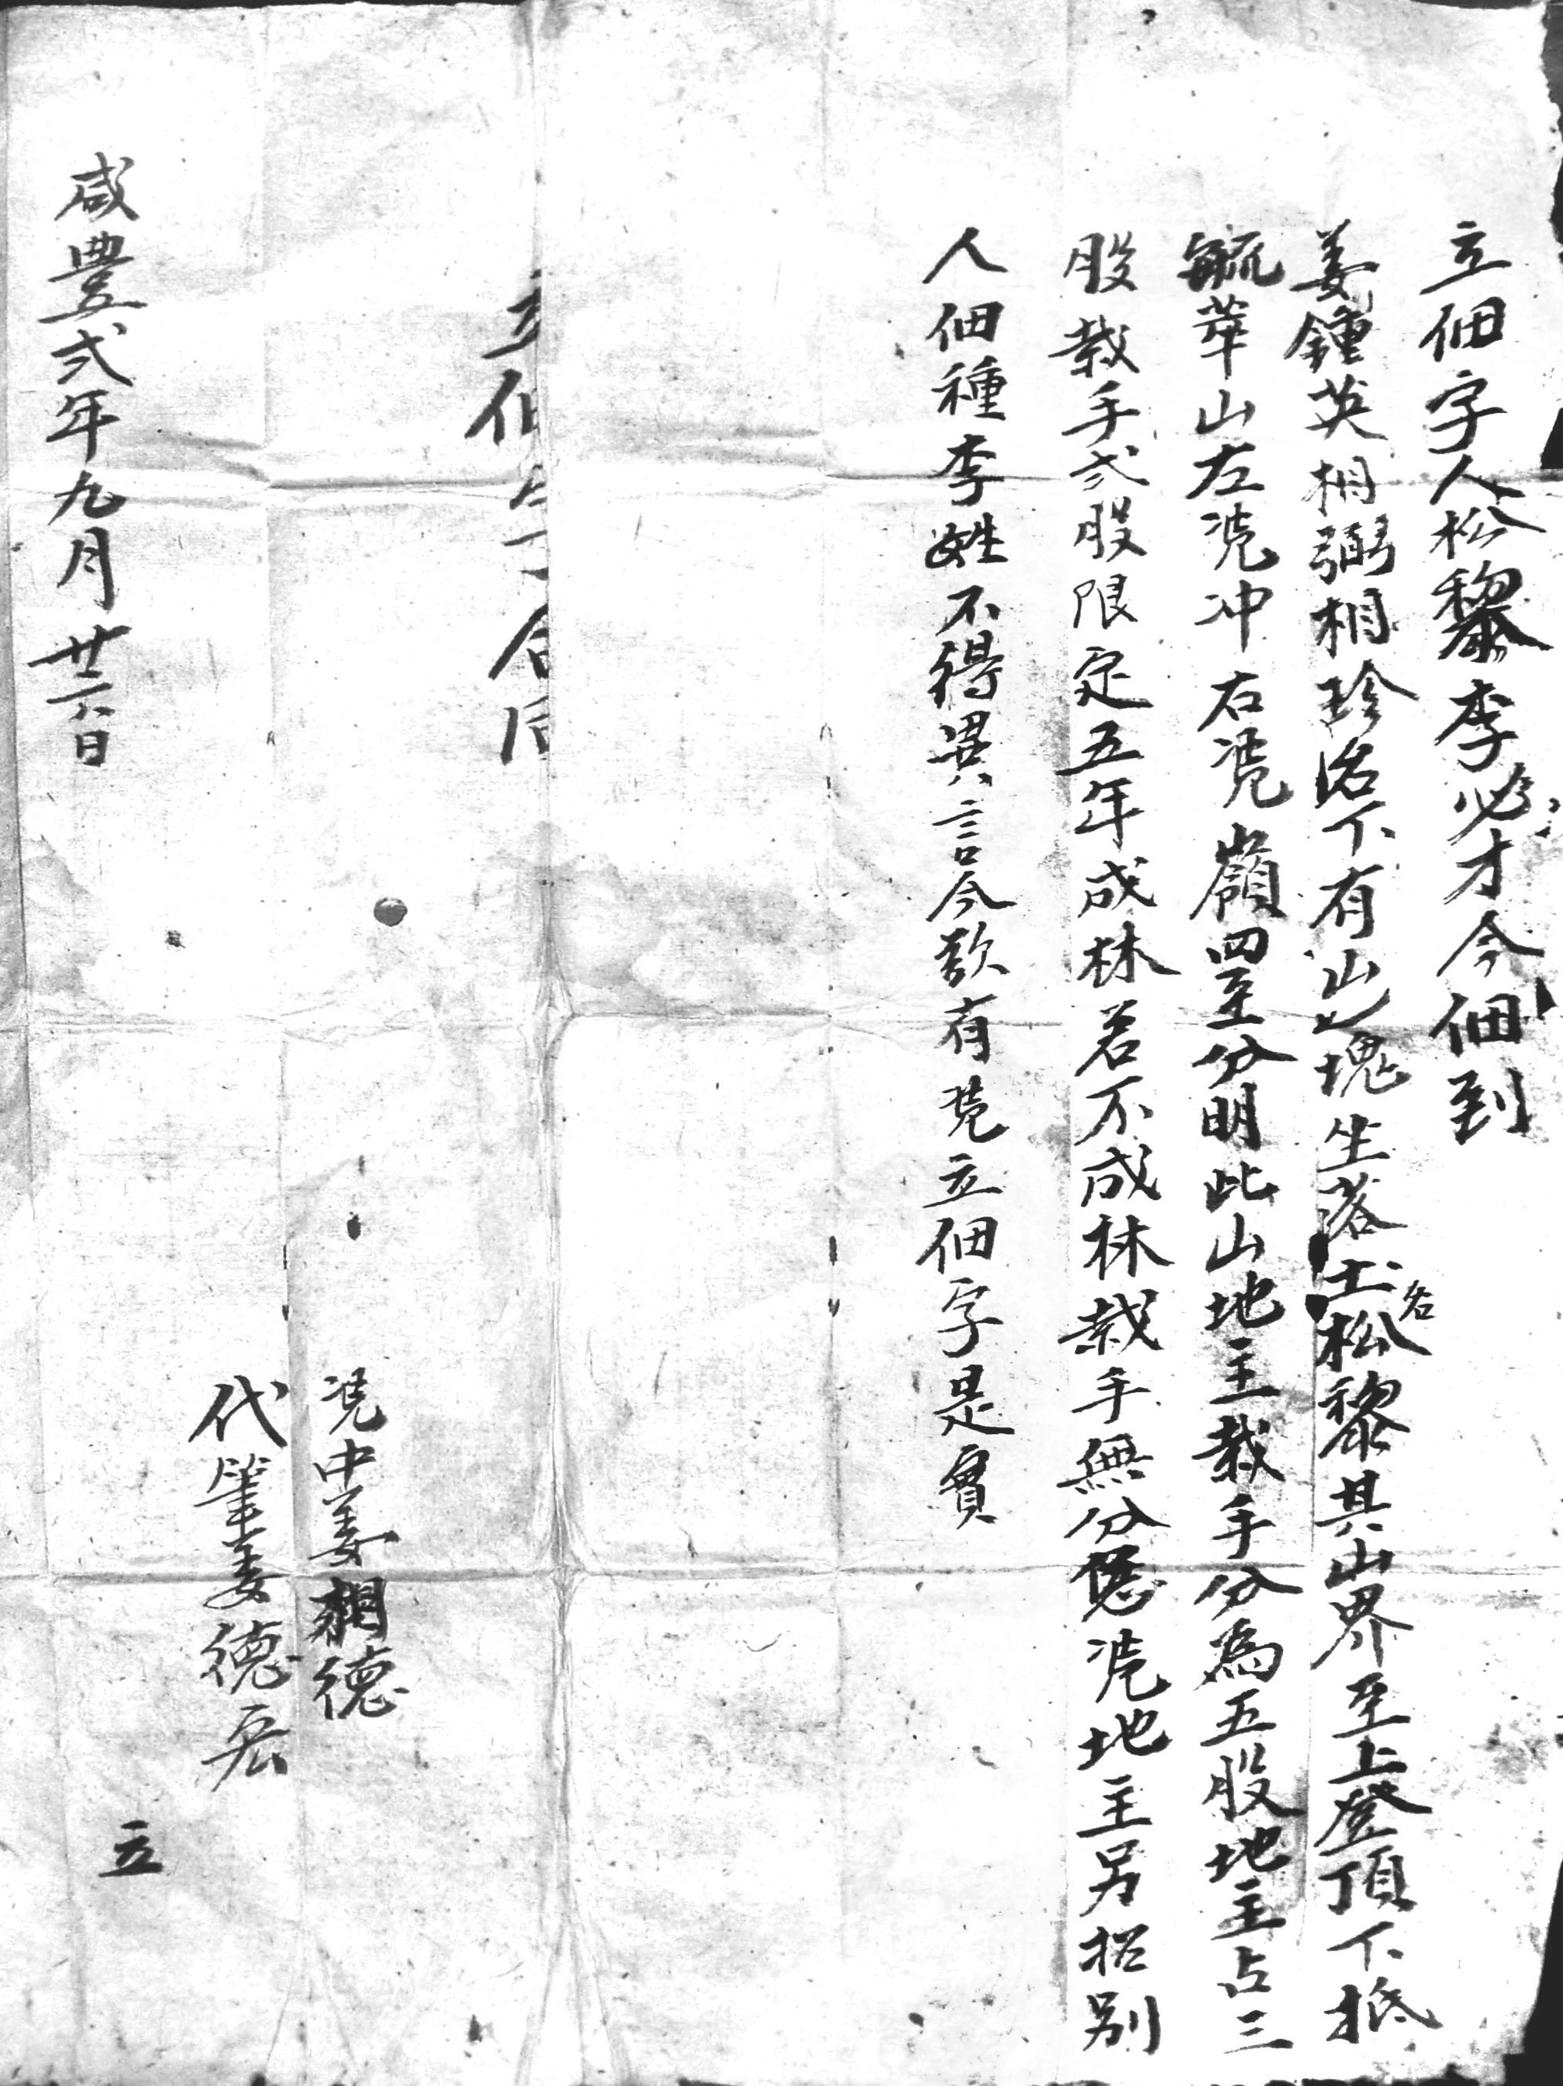 立佃字人松黎李必才今佃到
姜鍾英相弼相珍名下有山乙塊坐落土名松黎其山界至上登頂下抵
毓華山左凴冲右凴嶺四至分明此山地主栽手分為五股地主占三
股栽手弍股限定五年成林若不成林栽手無分憑凴地主另招別
人佃種李姓不得異言今欲有凴立佃字是實
立佃字合同
凴中姜相德
代筆姜德宏
咸豐弍年九月廿六日 立